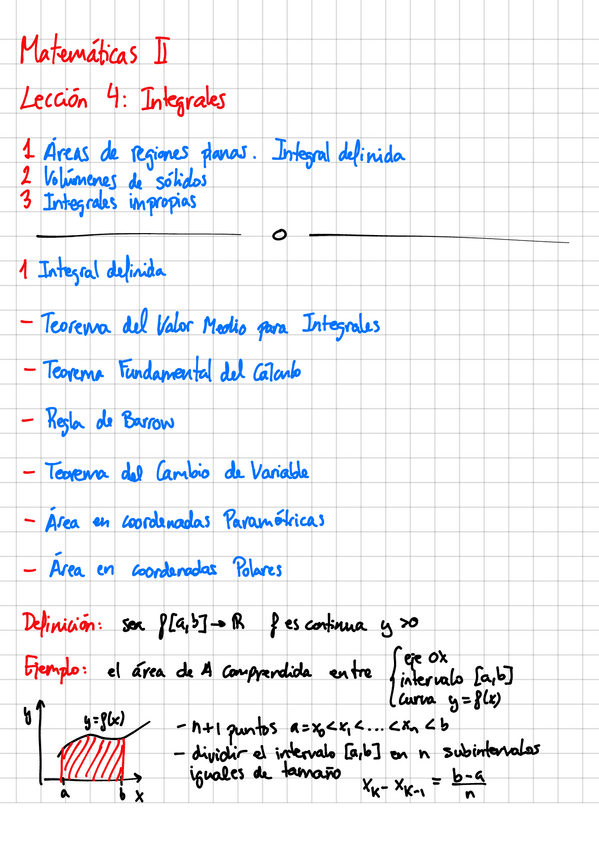 Matemáticas II
Lección 4: Integrales
1 Áreas de regiones planas. Integral definida
2 Volúmenes de sólidos
3 Integrales impropias
1 Integral definida
- Teorema del Valor Medio para Integrales
- Teorema Fundamental del Cálculo
- Regla de Barrow
- Teorema del Cambio de Variable
- Área en coordenadas Paramétricas
- Área en coordenadas Polares
Definición: sea f[a,b]→ℝ f es continua y >0
Ejemplo: el área de A comprendida entre { eje OX
intervalo [a,b]
curva y=f(x)
y y=f(x)
a b x
- n+1 puntos a=x₀<x₁<...<xₙ<b
- dividir el intervalo [a,b] en n subintervalos
iguales de tamaño x_K - x_{K-1} = \frac{b-a}{n}